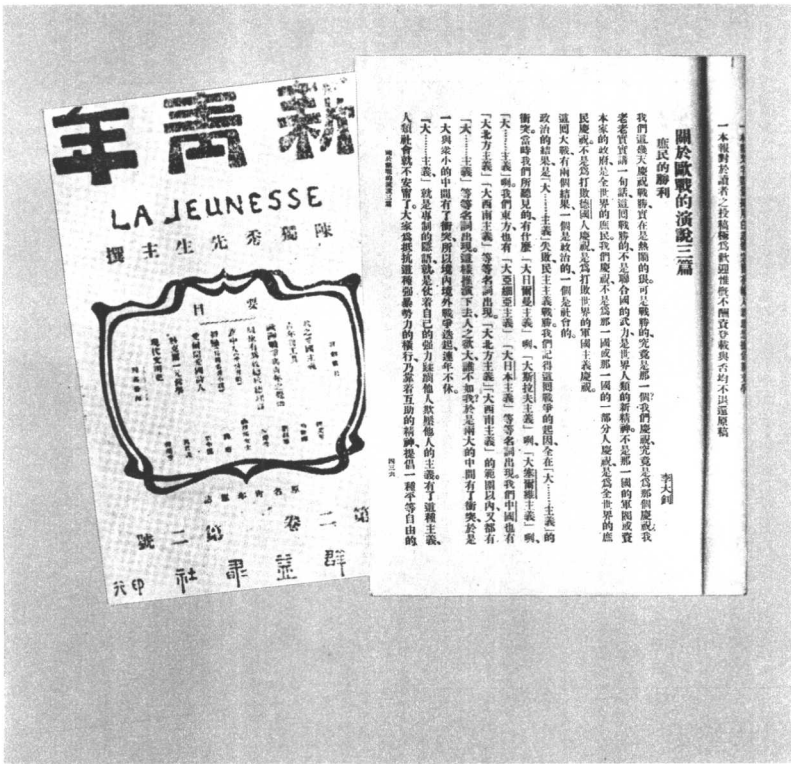 新青年
LA JEUNESSE
陳獨秀先生主撰
要目
第二卷第二號
羣益書社印行
一本報對於讀者之投稿極爲歡迎惟概不酬資登載與否均不退還原稿
關於歐戰的演說三篇
庶民的勝利
李大釗
我們這幾天慶祝戰勝、實在是熱鬧的很。可是戰勝的、究竟是那一個？我們慶祝、究竟是爲那個慶祝？我
老老實實講一句話這回戰勝的、不是聯合國的武力、是世界人類的新精神。不是那一國的軍閥或資
本家的政府、是全世界的庶民。我們慶祝、不是爲那一國或那一國的一部分人慶祝、是爲全世界的庶
民慶祝。不是爲打敗德國人慶祝、是爲打敗世界的軍國主義慶祝。
這回大戰、有兩個結果一個是政治的一個是社會的。
政治的結果、是「大……主義」失敗、民主主義戰勝。我們記得這回戰爭的起因、全在「大……主義」的
衝突。當時我們所聽見的、有什麼「大日爾曼主義」咧、「大斯拉夫主義」咧、「大塞爾維主義」咧、
「大……主義」咧。我們東方也有「大亞細亞主義」、「大日本主義」等等名詞出現。我們中國也有
「大北方主義」、「大西南主義」等等名詞出現。「大北方主義」、「大西南主義」的範圍以內、又都有
「大……主義」等等名詞出現。這樣推演下去、人之欲大、誰不如我？於是兩大的中間有了衝突、於是
一大與衆小的中間有了衝突、所以境內境外戰爭迭起、連年不休。
「大……主義」就是專制的隱語、就是仗着自己的强力蹂躪他人欺壓他人的主義。有了這種主義、
人類社會就不安甯了。大家爲抵抗這種强暴勢力的橫行、乃靠着互助的精神、提倡一種平等自由的
關於歐戰的演說三篇
四三六